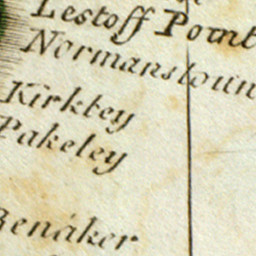 Lestoff Point
Normanstown
Kirkley
Pakeley
Benaker